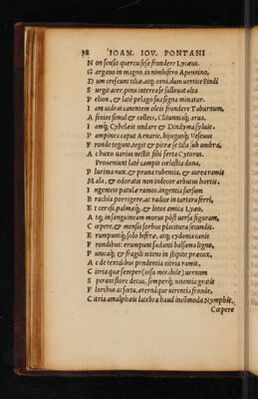 38 IOAN. IOV. PONTANI
N on sensit quercu sese frondere Lycæus.
G argano in magno, in nimbifero Apennino,
D um crescunt tiliæ, atq; orni, dum vertice Pindi
S urgit acer, pinu interea se sustinet alta
P elion, & late pelago sua segna minatur.
I am uideat canentem oleis frondere Taburnum,
A sinise simul & colles, Clitumniq; arua,
I amq; Cybeleis undare & Dindyma syluis,
P ampinea caput Aenarie, biiugumq; Vesevi
F ronde tegunt, tegit & piceæ se sila sub umbra,
A c buxo uarius nectit sibi serta Cytorus.
Proueniunt late campis cælestia dona,
P lurima nux, & pruna rubentia, & aurea ramis
M ala, & odoratis non indecor arbutus hortis,
I ngentes patulæ ramos, ingentia sursum
B rachia porrigere, ac radice in tartara ferri,
E t cerasi, palmæq; & lotos amica Lyæo,
A tq; in sanguineam morus post uersa figuram,
C œpere, & mensis sorbus placitura secundis.
E rumpuntq; solo biferæ, atq; cydonia canis
F rondibus: erumpunt sudanti balsama ligno,
P unicaq; & fragili nitens in stipite præcox,
A c de textilibus pendentia citria ramis,
C itria quæ semper (uisu mirabile) uernum
S pirant flore decus, semperq; nitentia gratis
F loribus ac fœta, æternáque uirentia fronde,
C itria amalphæis latebra haud incómoda Nymphis,
Cœpere